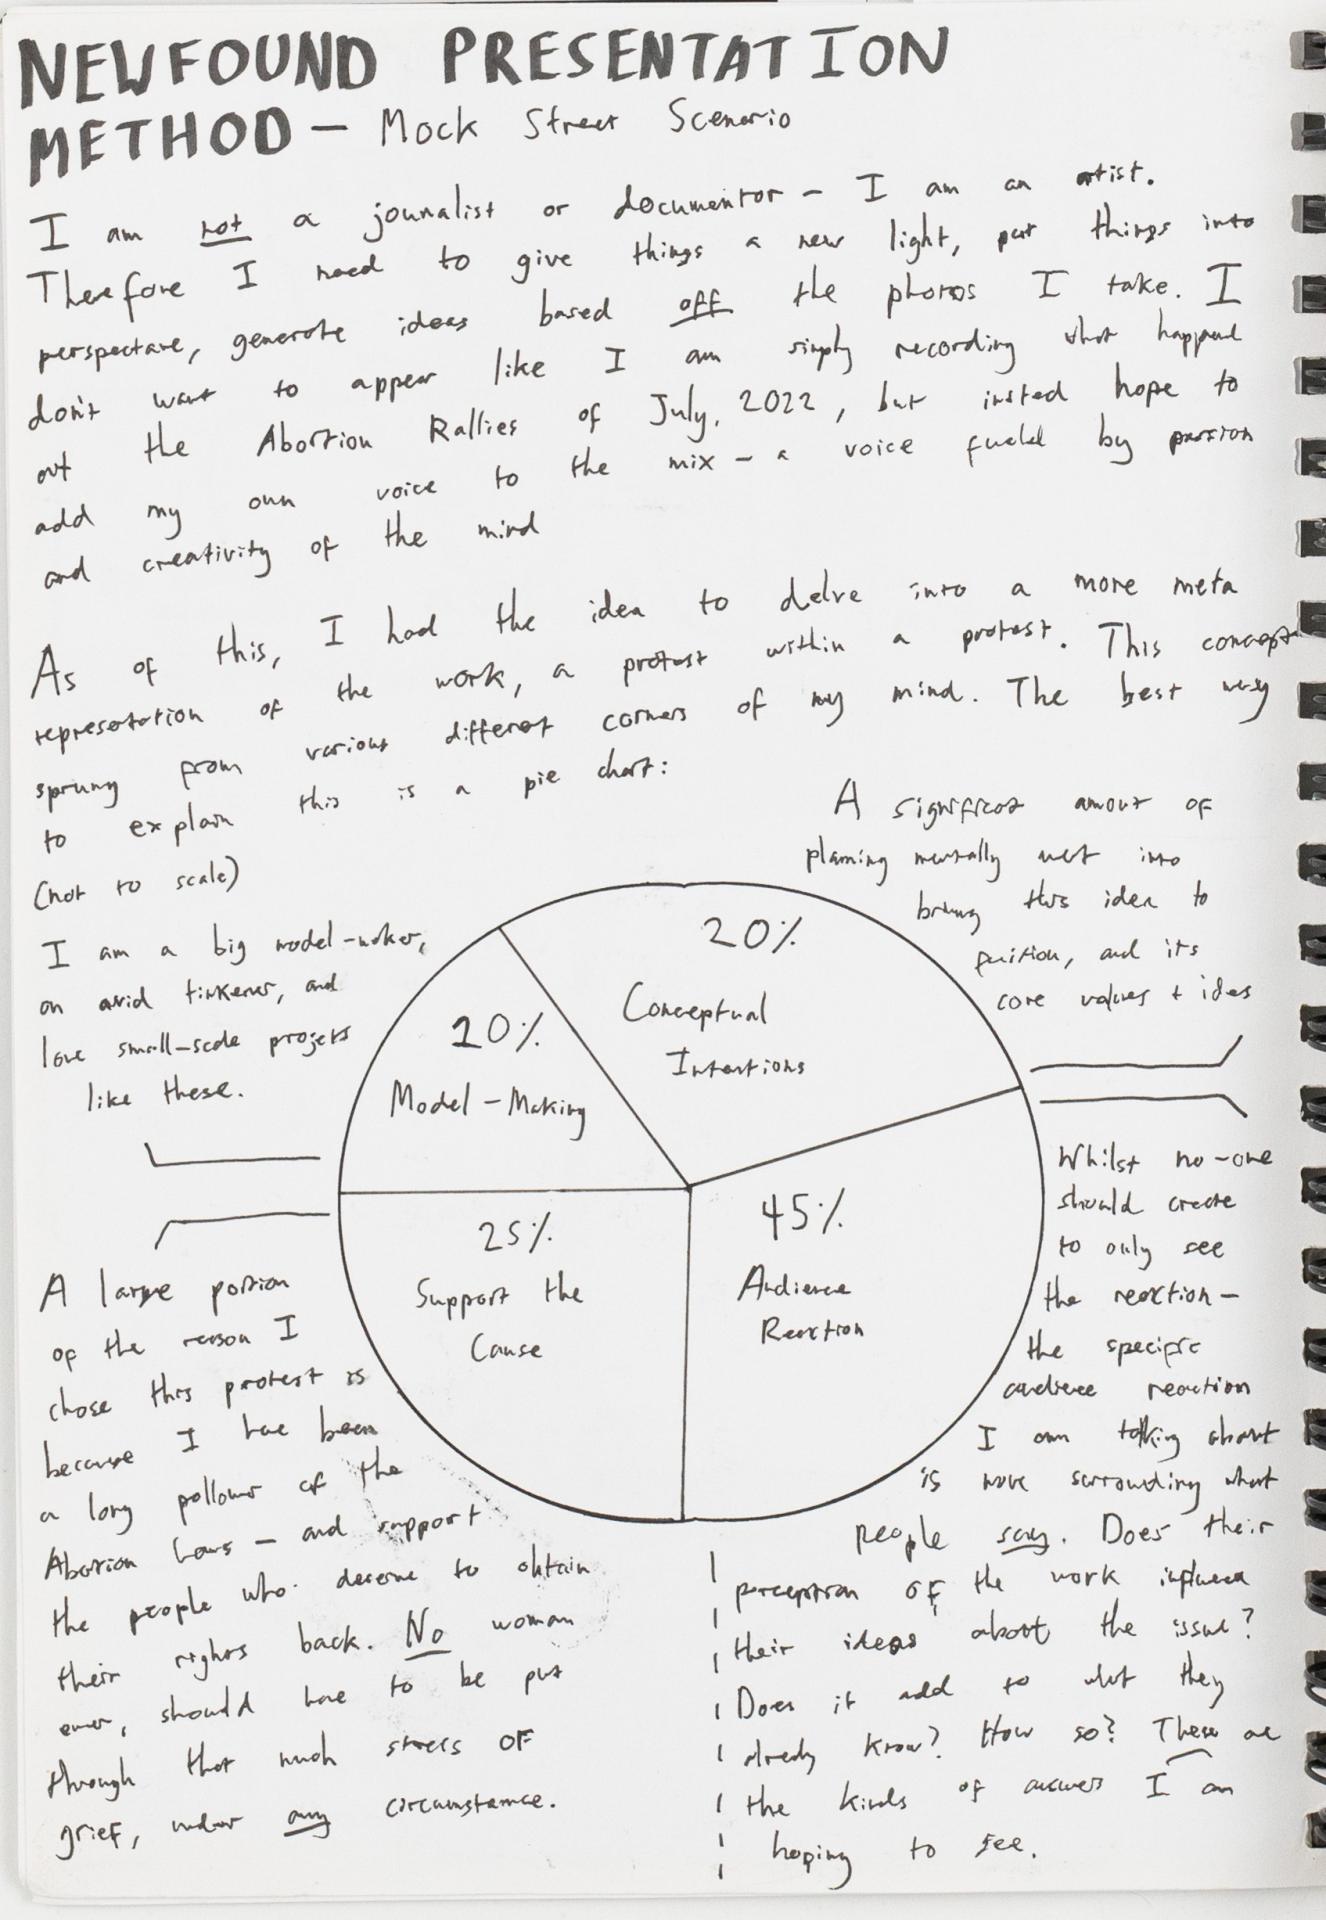 NEWFOUND PRESENTATION
METHOD - Mock Street Scenario
I am not a jounalist or documentor - I am an artist.
Therefore I need to give things a new light, put things into
perspective, generate ideas based off the photos I take. I
don't want to appear like I am simply recording what happened
out the Abortion Rallies of July, 2022, but insted hope to
add my own voice to the mix - a voice fueled by passion
and creativity of the mind
As of this, I had the idea to delve into a more meta
representation of the work, a protest within a protest. This concept
sprung from various different corners of my mind. The best way
to explain this is a pie chart:
(not to scale)
A significat amout of
planning mentally went into
bring this idea to
fuition, and its
core values + ideas
I am a big model-maker,
an avid tinkerer, and
love small-scale projets
like these.
20%
Conceptual
Intentions
10%
Model-Making
25%
Support the
Cause
45%
Audience
Reaction
A large portion
of the reason I
chose this protest is
because I have been
a long follower of the
Abortion laws - and support
the people who deserve to obtain
their rights back. No woman
ever, should have to be put
through that much stress OF
grief, under any circumstance.
Whilst no-one
should create
to only see
the reaction -
the specific
audience reaction
I am talking about
is more surrounding what
people say. Does their
perception OF the work influence
their ideas about the issue?
Does it add to what they
already know? How so? These are
the kinds of answers I am
hoping to see.